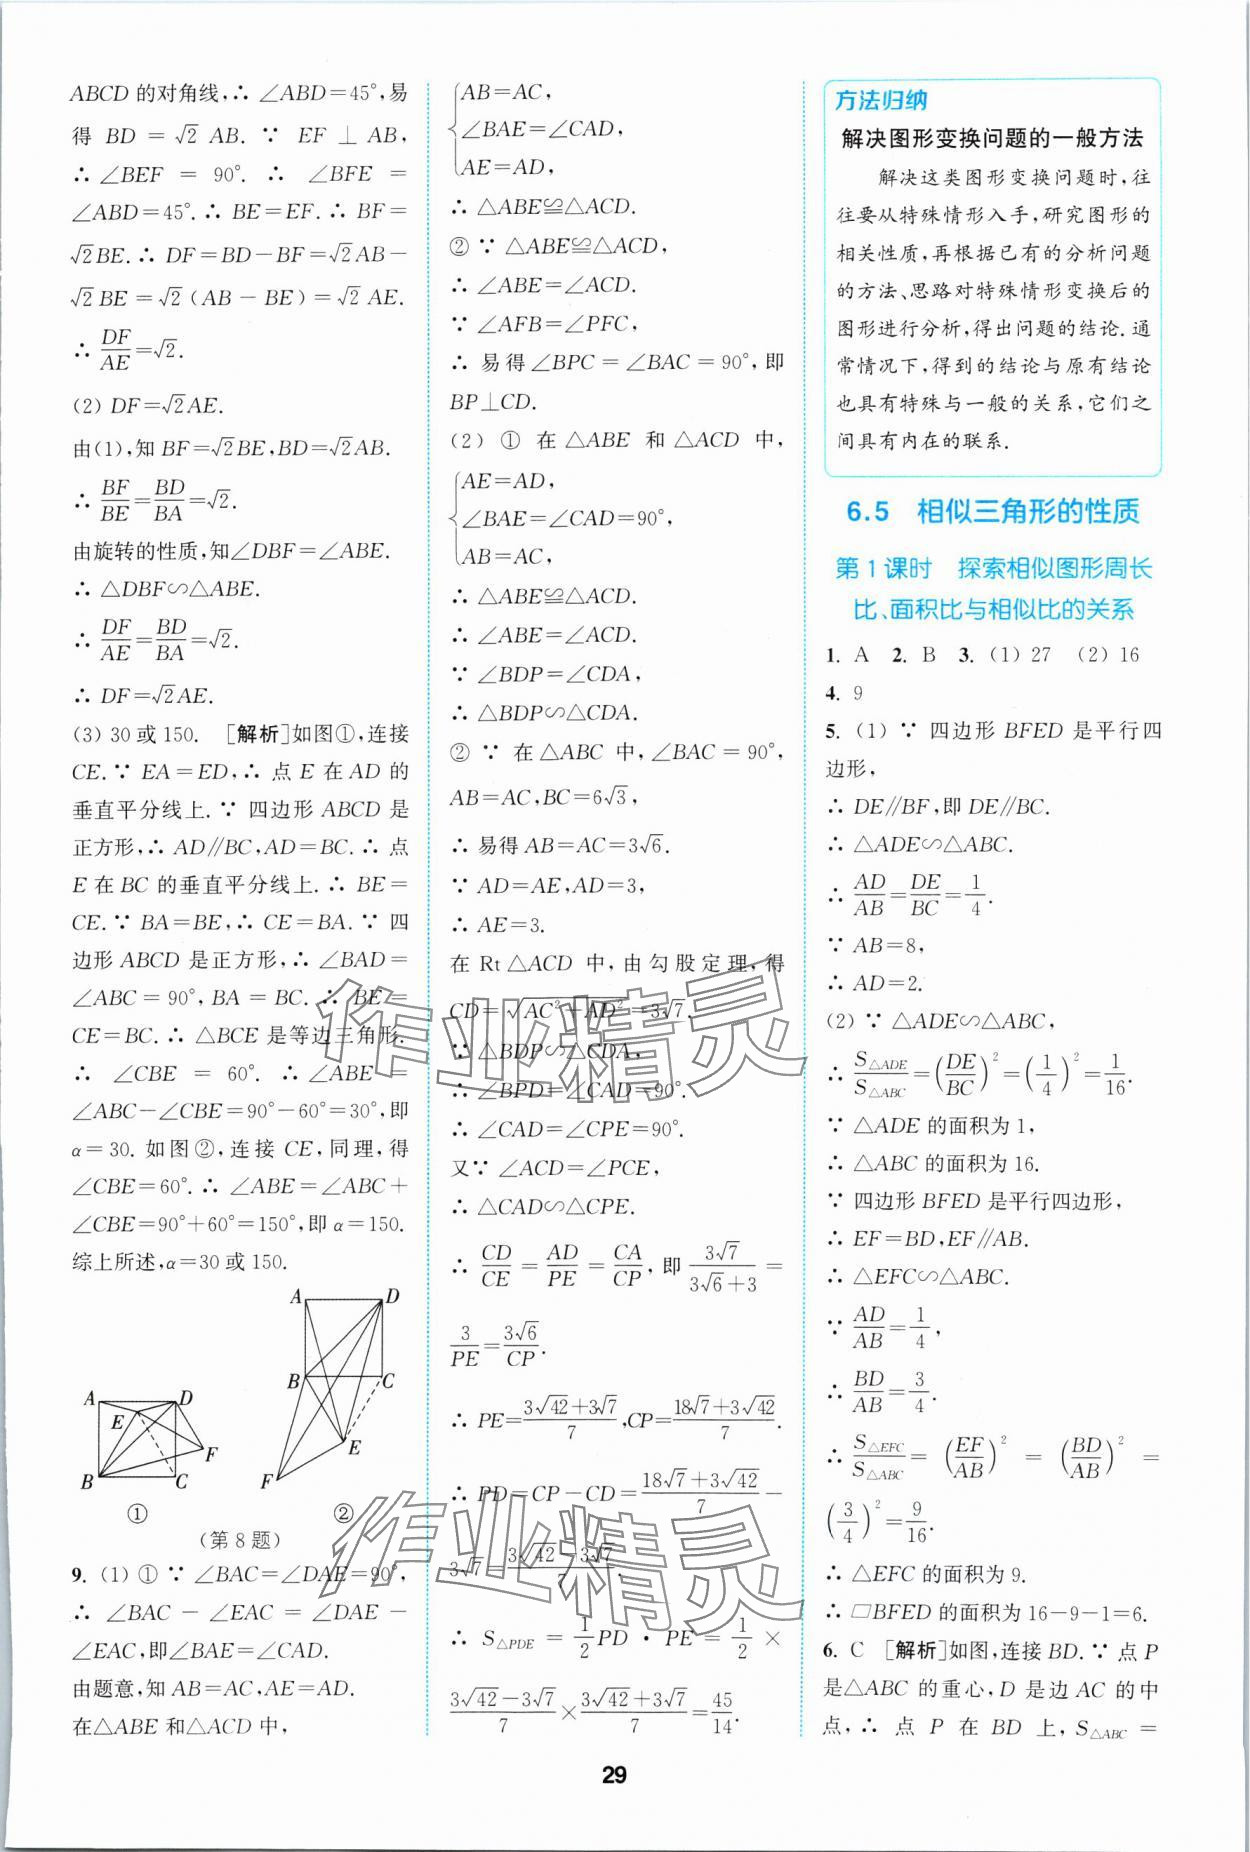 ABCD的对角线,∴ ∠ABD=45°,易
得 BD = √2 AB. ∵ EF ⊥ AB,
∴ ∠BEF = 90°. ∴ ∠BFE =
∠ABD=45°. ∴ BE=EF. ∴ BF=
√2BE. ∴ DF=BD-BF=√2AB-
√2BE=√2(AB-BE)=√2AE.
∴ DF/AE=√2.
(2) DF=√2AE.
由(1),知 BF=√2BE,BD=√2AB.
∴ BF/BE=BD/BA=√2.
由旋转的性质,知∠DBF=∠ABE.
∴ △DBF∽△ABE.
∴ DF/AE=BD/BA=√2.
∴ DF=√2AE.
(3) 30或150. [解析]如图①,连接
CE. ∵ EA=ED,∴ 点 E 在 AD 的
垂直平分线上. ∵ 四边形 ABCD 是
正方形,∴ AD∥BC,AD=BC. ∴ 点
E 在 BC 的垂直平分线上. ∴ BE=
CE. ∵ BA=BE,∴ CE=BA. ∵ 四
边形 ABCD 是正方形,∴ ∠BAD=
∠ABC=90°,BA=BC. ∴ BE=
CE=BC. ∴ △BCE 是等边三角形.
∴ ∠CBE = 60°. ∴ ∠ABE =
∠ABC-∠CBE=90°-60°=30°,即
α=30. 如图②,连接 CE,同理,得
∠CBE=60°. ∴ ∠ABE=∠ABC+
∠CBE=90°+60°=150°,即 α=150.
综上所述,α=30 或 150.
A D E F B C
①
A D B C E F
②
(第8题)
9. (1) ① ∵ ∠BAC=∠DAE=90°,
∴ ∠BAC - ∠EAC = ∠DAE -
∠EAC,即∠BAE=∠CAD.
由题意,知 AB=AC,AE=AD.
在△ABE 和△ACD 中,
{AB=AC,
∠BAE=∠CAD,
AE=AD,
∴ △ABE≌△ACD.
② ∵ △ABE≌△ACD,
∴ ∠ABE=∠ACD.
∵ ∠AFB=∠PFC,
∴ 易得∠BPC=∠BAC=90°,即
BP⊥CD.
(2) ① 在△ABE 和△ACD 中,
{AE=AD,
∠BAE=∠CAD=90°,
AB=AC,
∴ △ABE≌△ACD.
∴ ∠ABE=∠ACD.
∵ ∠BDP=∠CDA,
∴ △BDP∽△CDA.
② ∵ 在△ABC 中,∠BAC=90°,
AB=AC,BC=6√3,
∴ 易得 AB=AC=3√6.
∵ AD=AE,AD=3,
∴ AE=3.
在 Rt△ACD 中,由勾股定理,得
CD=√(AC²+AD²)=3√7.
∵ △BDP∽△CDA,
∴ ∠BPD=∠CAD=90°.
∴ ∠CAD=∠CPE=90°.
又∵ ∠ACD=∠PCE,
∴ △CAD∽△CPE.
∴ CD/CE = AD/PE = CA/CP,即 3√7/(3√6+3) =
3/PE=3√6/CP.
∴ PE=(3√42+3√7)/7,CP=(18√7+3√42)/7.
∴ PD=CP-CD=(18√7+3√42)/7-
3√7=(3√42-3√7)/7.
∴ S△PDE = 1/2 PD · PE = 1/2 ×
(3√42-3√7)/7×(3√42+3√7)/7=45/14.
方法归纳
解决图形变换问题的一般方法
解决这类图形变换问题时,往
往要从特殊情形入手,研究图形的
相关性质,再根据已有的分析问题
的方法、思路对特殊情形变换后的
图形进行分析,得出问题的结论. 通
常情况下,得到的结论与原有结论
也具有特殊与一般的关系,它们之
间具有内在的联系.
6.5 相似三角形的性质
第1课时 探索相似图形周长
比、面积比与相似比的关系
1. A 2. B 3. (1) 27 (2) 16
4. 9
5. (1) ∵ 四边形 BFED 是平行四
边形,
∴ DE∥BF,即 DE∥BC.
∴ △ADE∽△ABC.
∴ AD/AB=DE/BC=1/4.
∵ AB=8,
∴ AD=2.
(2) ∵ △ADE∽△ABC,
∴ S△ADE/S△ABC=(DE/BC)²=(1/4)²=1/16.
∵ △ADE 的面积为1,
∴ △ABC 的面积为16.
∵ 四边形 BFED 是平行四边形,
∴ EF=BD,EF∥AB.
∴ △EFC∽△ABC.
∵ AD/AB=1/4,
∴ BD/AB=3/4.
∴ S△EFC/S△ABC = (EF/AB)² = (BD/AB)² =
(3/4)²=9/16.
∴ △EFC 的面积为9.
∴ □BFED 的面积为16-9-1=6.
6. C [解析]如图,连接 BD. ∵ 点 P
是△ABC 的重心,D 是边 AC 的中
点,∴ 点 P 在 BD 上,S△ABC =
29
作业精灵
作业精灵